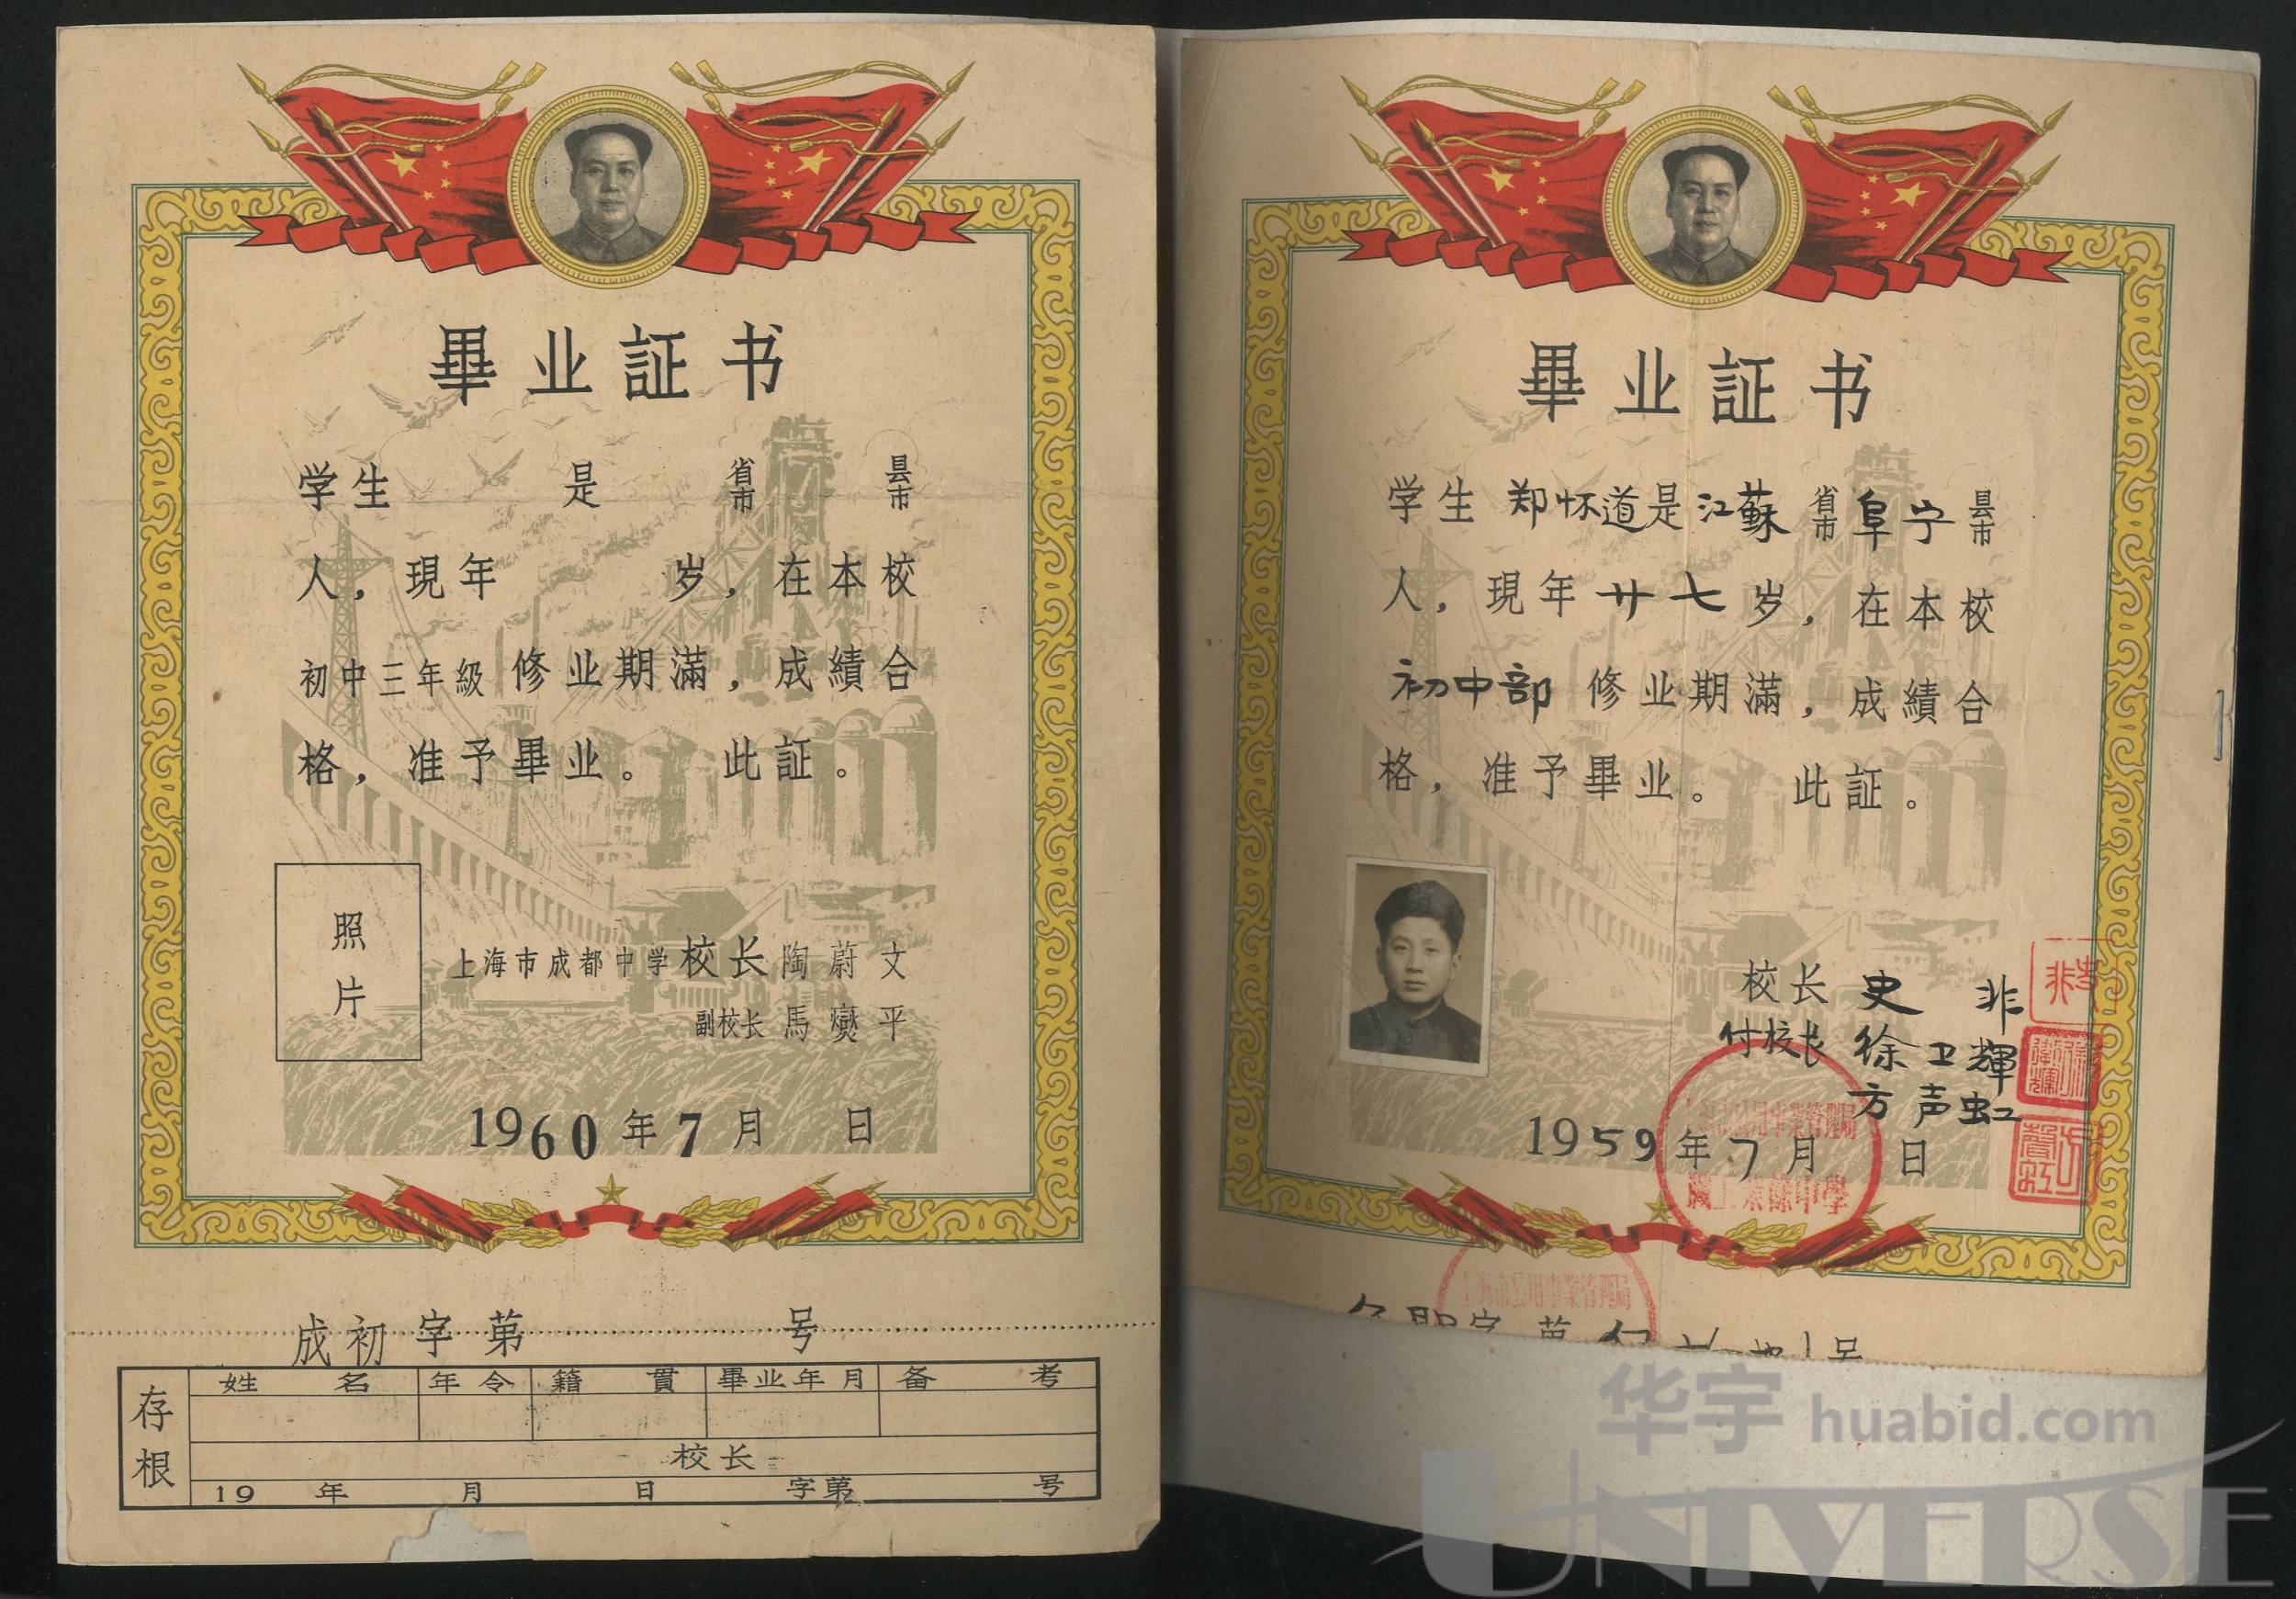 畢业証书
学生 是 省市 县市
人，現年 岁，在本校
初中三年級修业期滿，成績合
格，准予畢业。 此証。
照片
上海市成都中学校长 陶蔚文
副校长 馬爕平
1960年7月 日
成初字第 号
存根
姓名 年令 籍貫 畢业年月 备考
校长
19 年 月 日 字第 号
畢业証书
学生 郑怀道是江蘇省市阜宁县市
人，現年廿七岁，在本校
初中部 修业期滿，成績合
格，准予畢业。 此証。
校长 史非
付校长 徐卫輝
方声虹
1959年7月 日
職工業餘中學
上海市公用事業管理局
字第 号
华宇 huabid.com
UNIVERSE